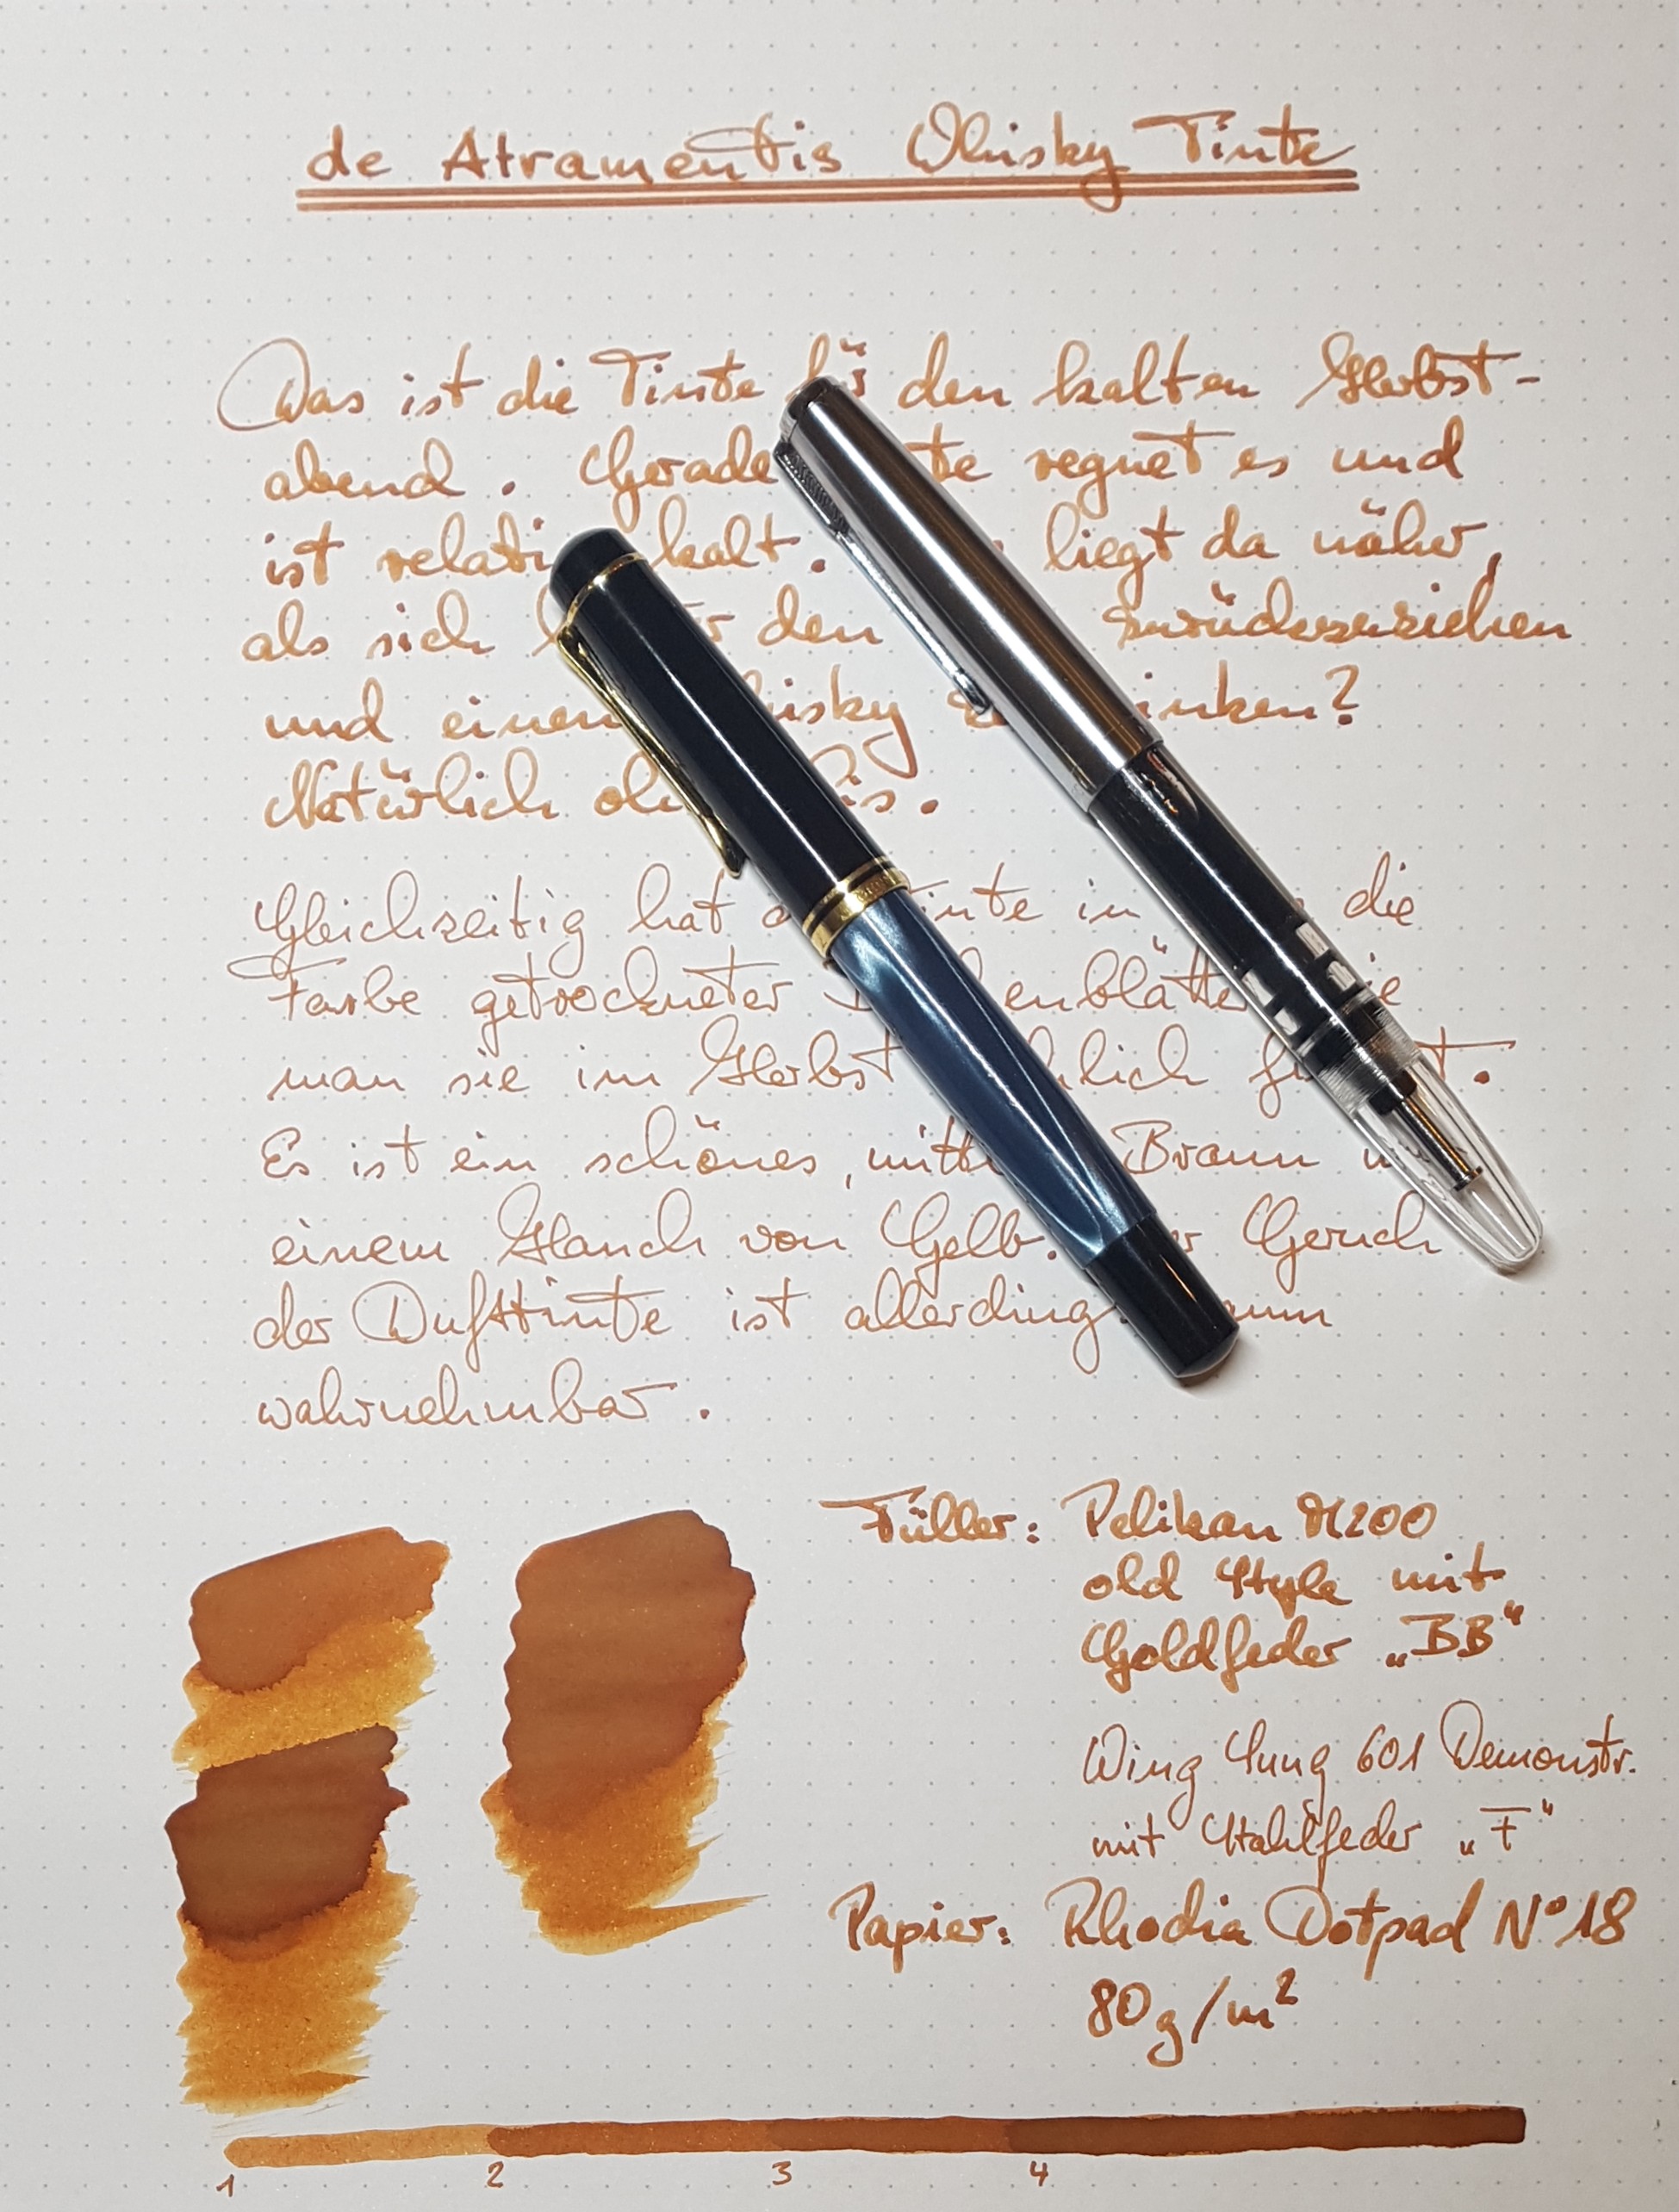 de Atramentis Whisky Tinte
Das ist die Tinte für den kalten Herbst-
abend. Gerade te regnet es und
ist relativ kalt. liegt da näher,
als sich den zurückzuziehen
und einen Whisky inken?
Natürlich oh is.
Gleichzeitig hat Tinte in die
Farbe getrockneter enblätter
man sie im Herbst hlich f t.
Es ist ein schönes, mittl Braun
einem Hauch von Gelb. er Geruch
der Dufttinte ist allerding aum
wahrnehmbar.
Füller: Pelikan M200
old Style mit
Goldfeder „BB“
Wing Sung 601 Demonstr.
mit Stahlfeder „F“
Papier: Rhodia Dotpad N° 18
80g/m²
1 2 3 4